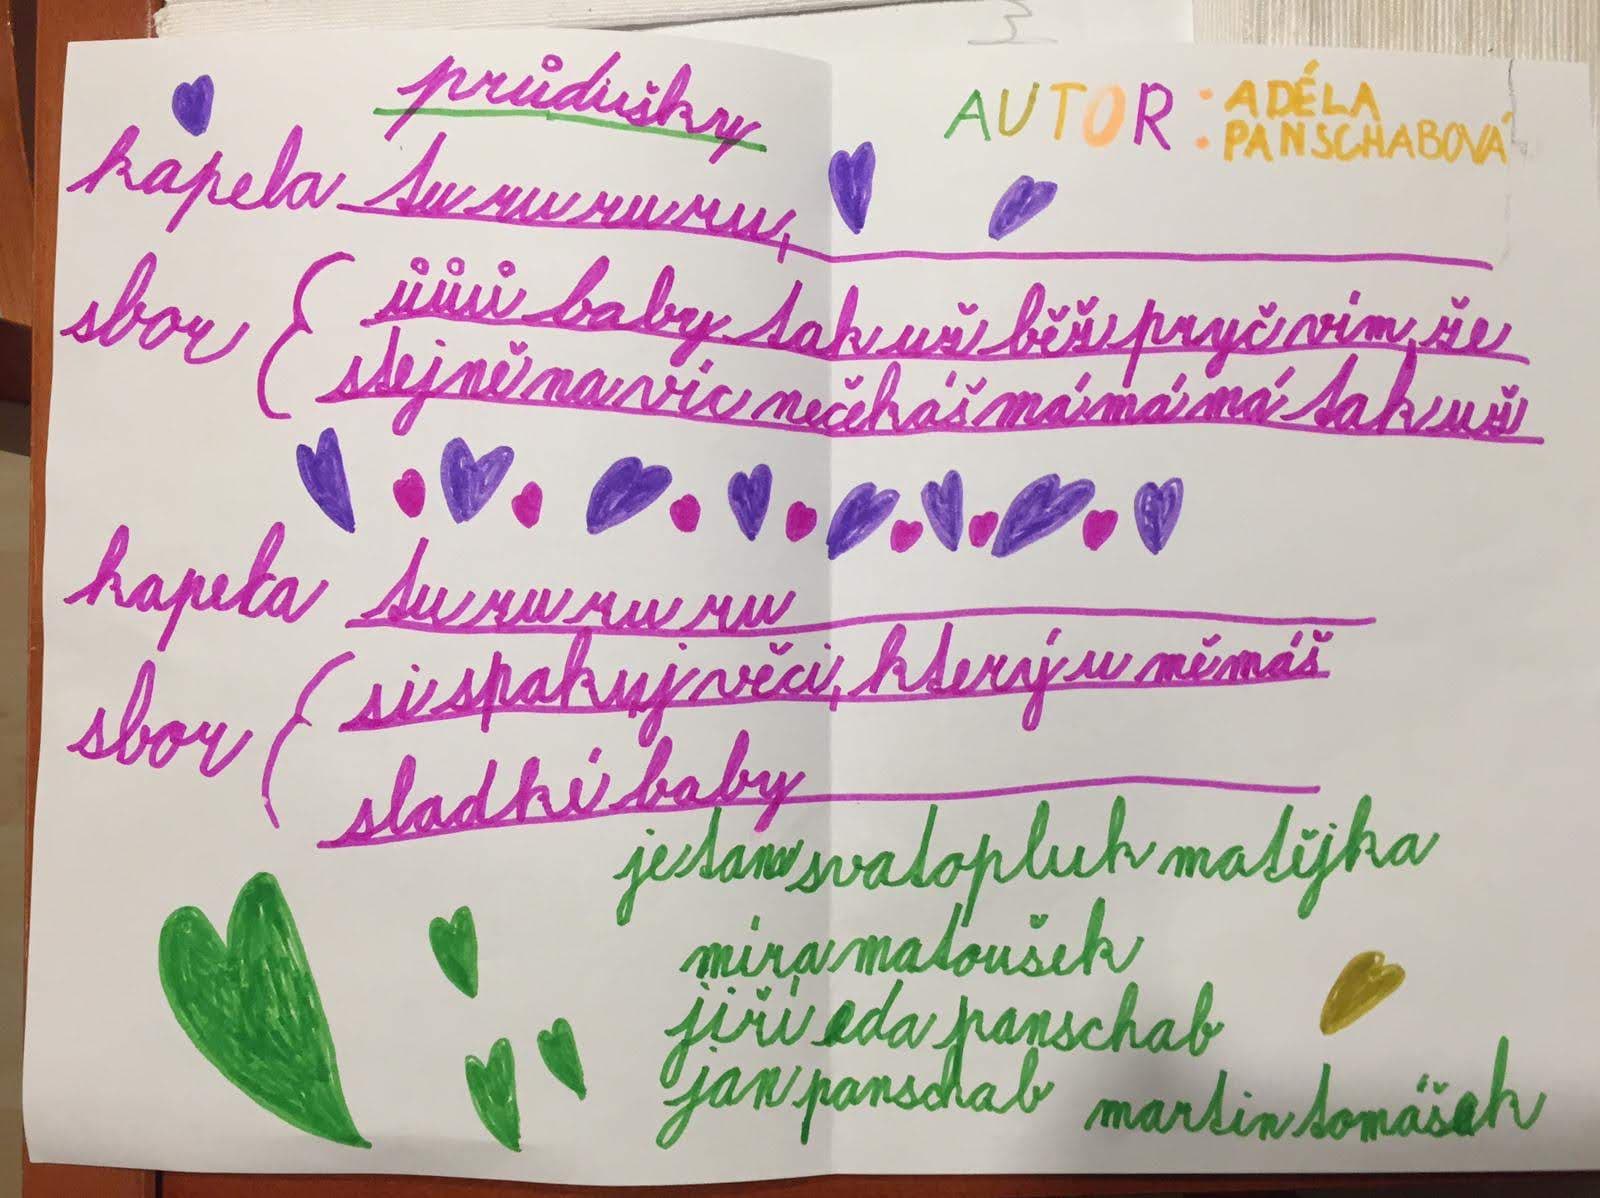 průdušky
AUTOR: ADÉLA
PANSCHABOVÁ
kapela tu ru ru ru,
sbor ůůů baby tak už běž pryč vim, že
stejně na víc nečekáš má má má tak už
kapela tu ru ru ru
sbor si spakuj věci, který u mě máš
sladké baby
je tam svatopluk matějka
mira matoušek
jiří eda panschab
jan panschab
martin tomášek